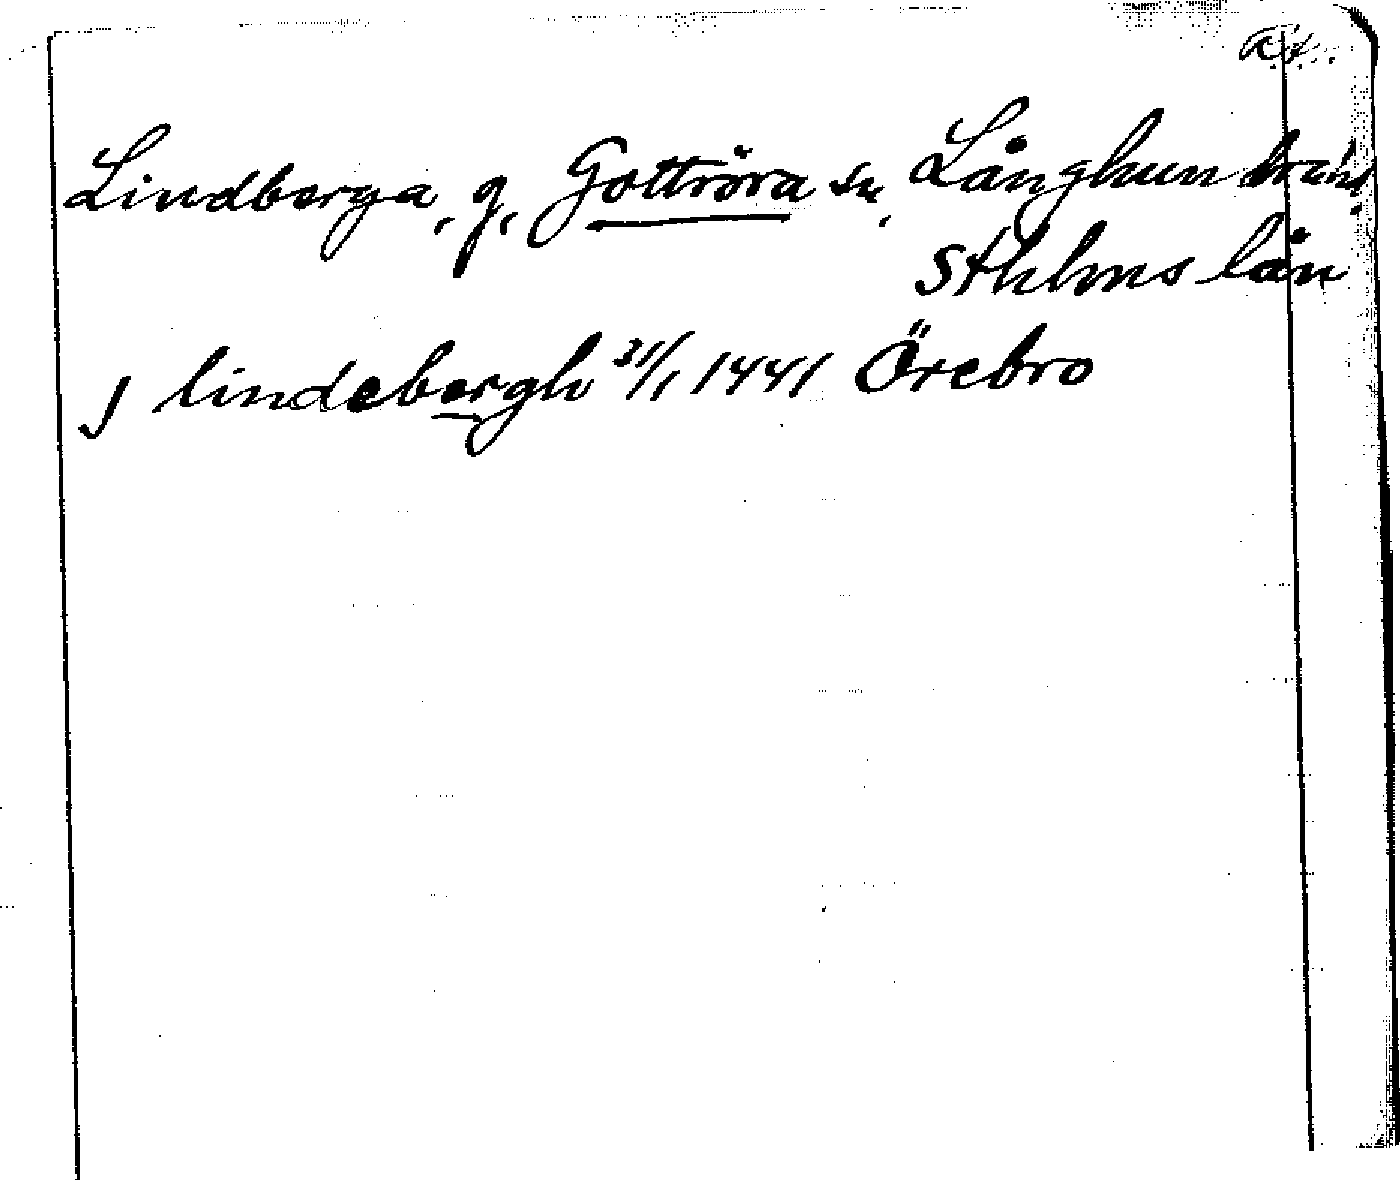 Lindberga, g, Gottröra sn, Långhundra hd
Sthlms län
J lindebergh 31/1 1441 Örebro